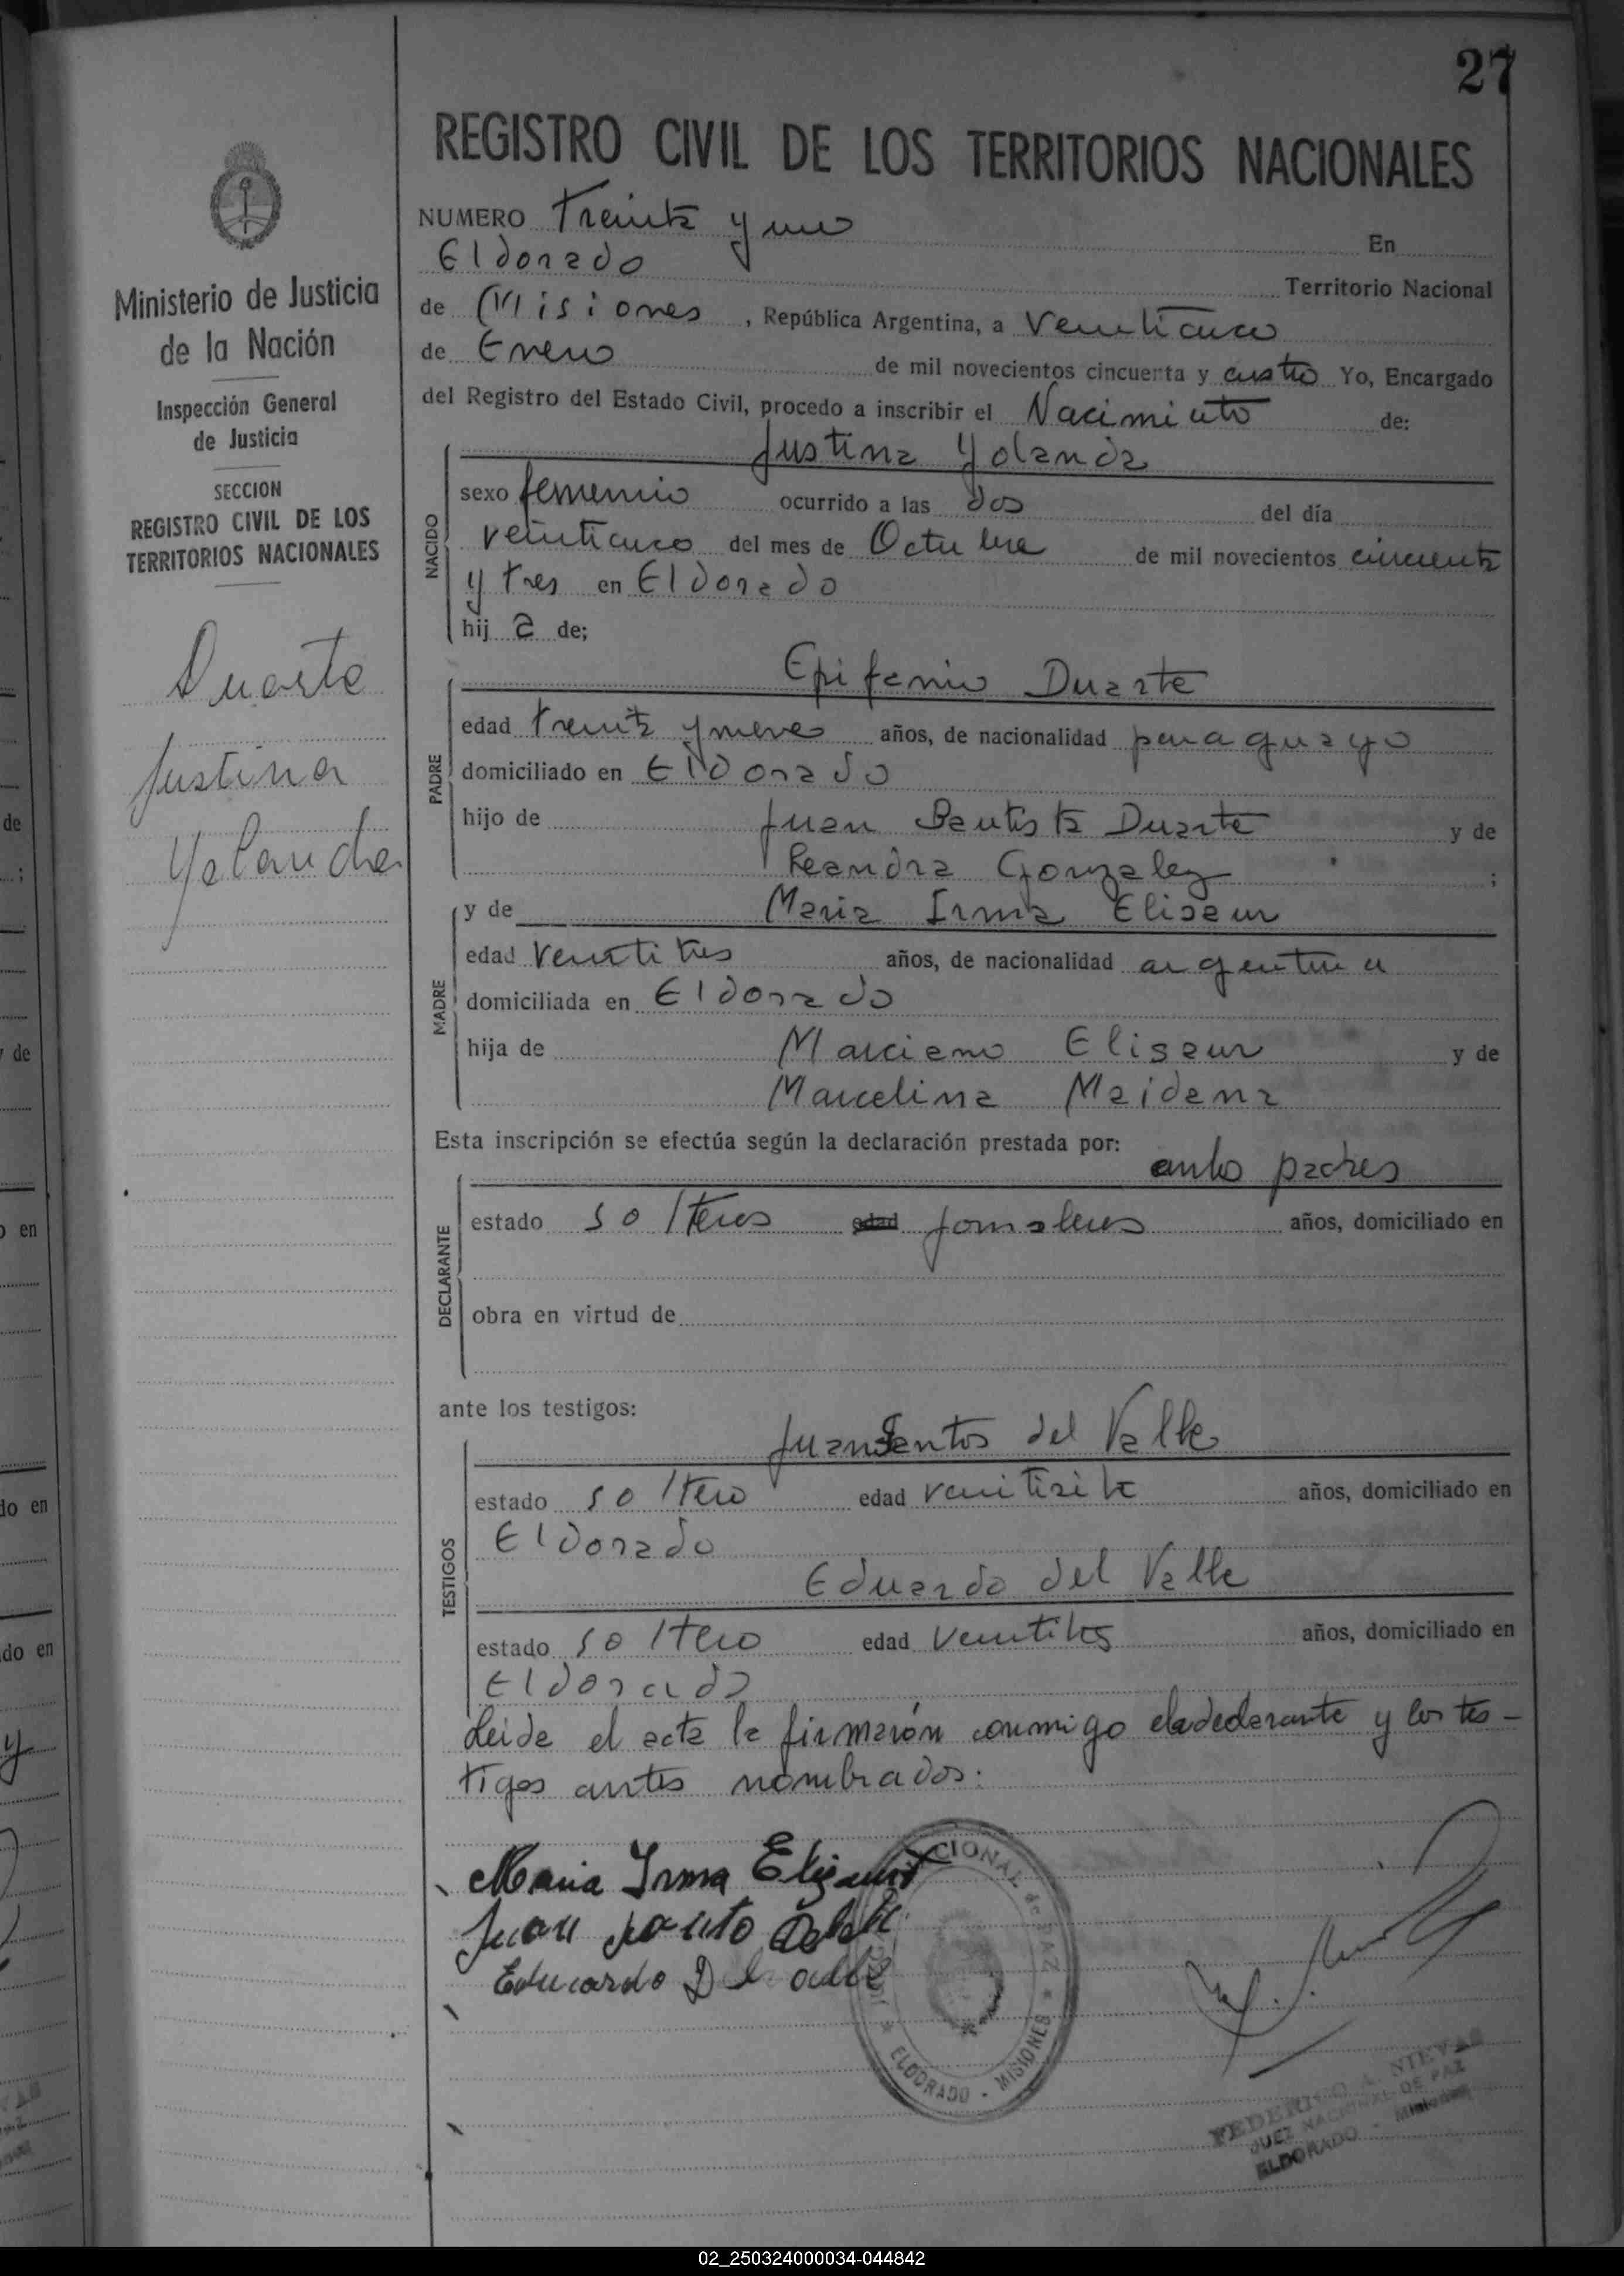 27
REGISTRO CIVIL DE LOS TERRITORIOS NACIONALES
Ministerio de Justicia
de la Nación
Inspección General
de Justicia
SECCION
REGISTRO CIVIL DE LOS
TERRITORIOS NACIONALES
Duarte
Justina
Yolanda
NUMERO Treinta y uno En
Eldorado Territorio Nacional
de Misiones, República Argentina, a Venticinco
de Enero de mil novecientos cincuenta y cuatro Yo, Encargado
del Registro del Estado Civil, procedo a inscribir el Nacimiento de:
Justina Yolanda
NACIDO
sexo femenino ocurrido a las dos del día
veinticinco del mes de Octubre de mil novecientos cincuenta
y tres en Eldorado
hij a de;
Epifanio Duarte
PADRE
edad treinta y nueve años, de nacionalidad paraguayo
domiciliado en Eldorado
hijo de Juan Bautista Duarte y de
Leandra Gonzalez ;
y de Maria Irma Elisaur
MADRE
edad ventitres años, de nacionalidad argentina
domiciliada en Eldorado
hija de Marciano Elisaur y de
Marcelina Maidana
Esta inscripción se efectúa según la declaración prestada por:
ambo padres
DECLARANTE
estado solteros edad jornaleros años, domiciliado en
obra en virtud de
ante los testigos:
Juan Santos del Valle
TESTIGOS
estado soltero edad años, domiciliado en
Eldorado
Eduardo del Valle
estado soltero edad años, domiciliado en
Eldorado
Leida el acta la firmarón conmigo el declarante y los tes-
tigos antes nombrados.
Maria Irma
Juan Santo
Eduardo
CIONAL de PAZ * ELDORADO - MISIONES *
FEDERICO A. NIEVAS
JUEZ NACIONAL DE PAZ
ELDORADO - Misiones
de
;
y de
o en
do en
do en
y
02_250324000034-044842